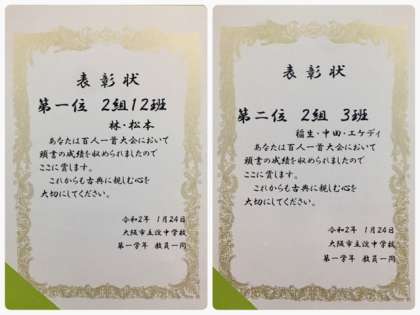 表彰状
第一位 2組12班
林・松本
あなたは百人一首大会において
頭書の成績を収められましたので
ここに賞します。
これからも古典に親しむ心を
大切にしてください。
令和2年 1月24日
大阪市立淀中学校
第一学年 教員一同
表彰状
第二位 2組 3班
稲生・中田・エケディ
あなたは百人一首大会において
頭書の成績を収められましたので
ここに賞します。
これからも古典に親しむ心を
大切にしてください。
令和2年 1月24日
大阪市立淀中学校
第一学年 教員一同